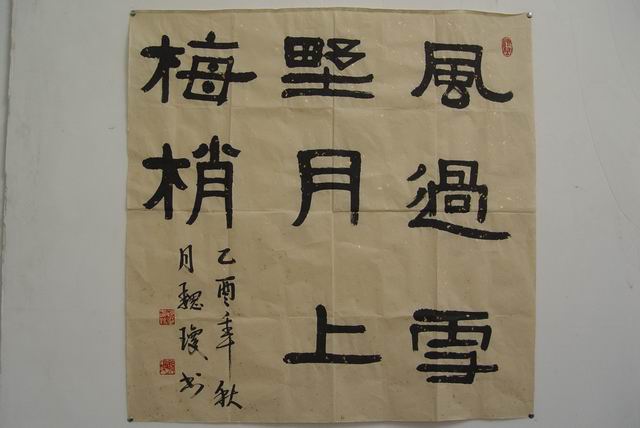 風過雪
墅月上
梅梢
乙酉年秋
月魏瓊书